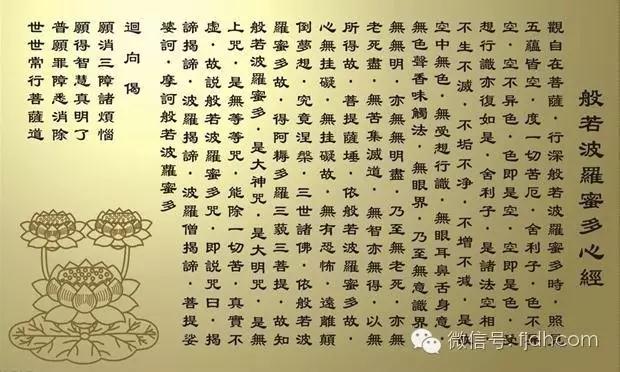 般若波羅蜜多心經
觀自在菩薩．行深般若波羅蜜多時．照見
五蘊皆空．度一切苦厄．舍利子．色不異
空．空不异色．色即是空．空即是色．受
想行識亦復如是．舍利子．是諸法空相．
不生不滅．不垢不净．不增不減．是故
空中無色．無受想行識．無眼耳鼻舌身意．
無色聲香味觸法．無眼界．乃至無意識界．
無無明．亦無無明盡．乃至無老死．亦無
老死盡．無苦集滅道．無智亦無得．以無
所得故．菩提薩埵．依般若波羅蜜多故．
心無挂礙．無挂礙故．無有恐怖．遠離顛
倒夢想．究竟涅槃．三世諸佛．依般若波
羅蜜多故．得阿耨多羅三藐三菩提．故知
般若波羅蜜多．是大神咒．是大明咒．是無
上咒．是無等等咒．能除一切苦．真實不
虛．故說般若波羅蜜多咒．即說咒曰．揭
諦揭諦．波羅揭諦．波羅僧揭諦．菩提娑
婆訶．摩訶般若波羅蜜多
迴向偈
願消三障諸煩惱
願得智慧真明了
普願罪障悉消除
世世常行菩薩道
微信号: fjdh-com